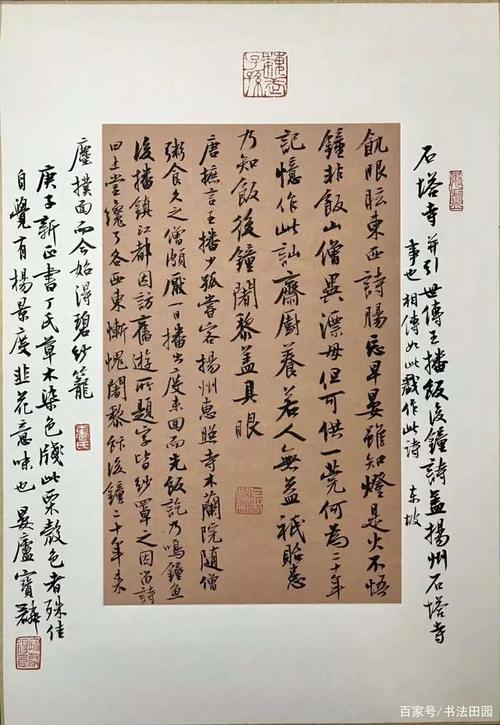 石塔寺 并引 世傳王播飯後鐘詩蓋揚州石塔寺
事也相傳如此戲作此詩 東坡
飢眼眩東西詩腸忘早晏雖知燈是火不悟
鐘非飯山僧異漂母但可供一莞何為二十年
記憶作此訕齋廚養若人無益祇貽患
乃知飯後鐘闍黎蓋具眼
唐摭言王播少孤嘗客揚州惠照寺木蘭院隨僧
粥食久之僧頗厭一日播出度未回而先飯訖乃鳴鐘魚
後播鎮江都因訪舊遊所題字皆紗罩之因留詩
曰上堂纔了各西東慚愧闍黎飯後鐘二十年來
塵撲面而今始得碧紗籠
庚子新正書丁氏草木染色牋此栗殼色者殊佳
自覺有楊景度韭花意味也 晏廬寶麟
百家号/书法田园